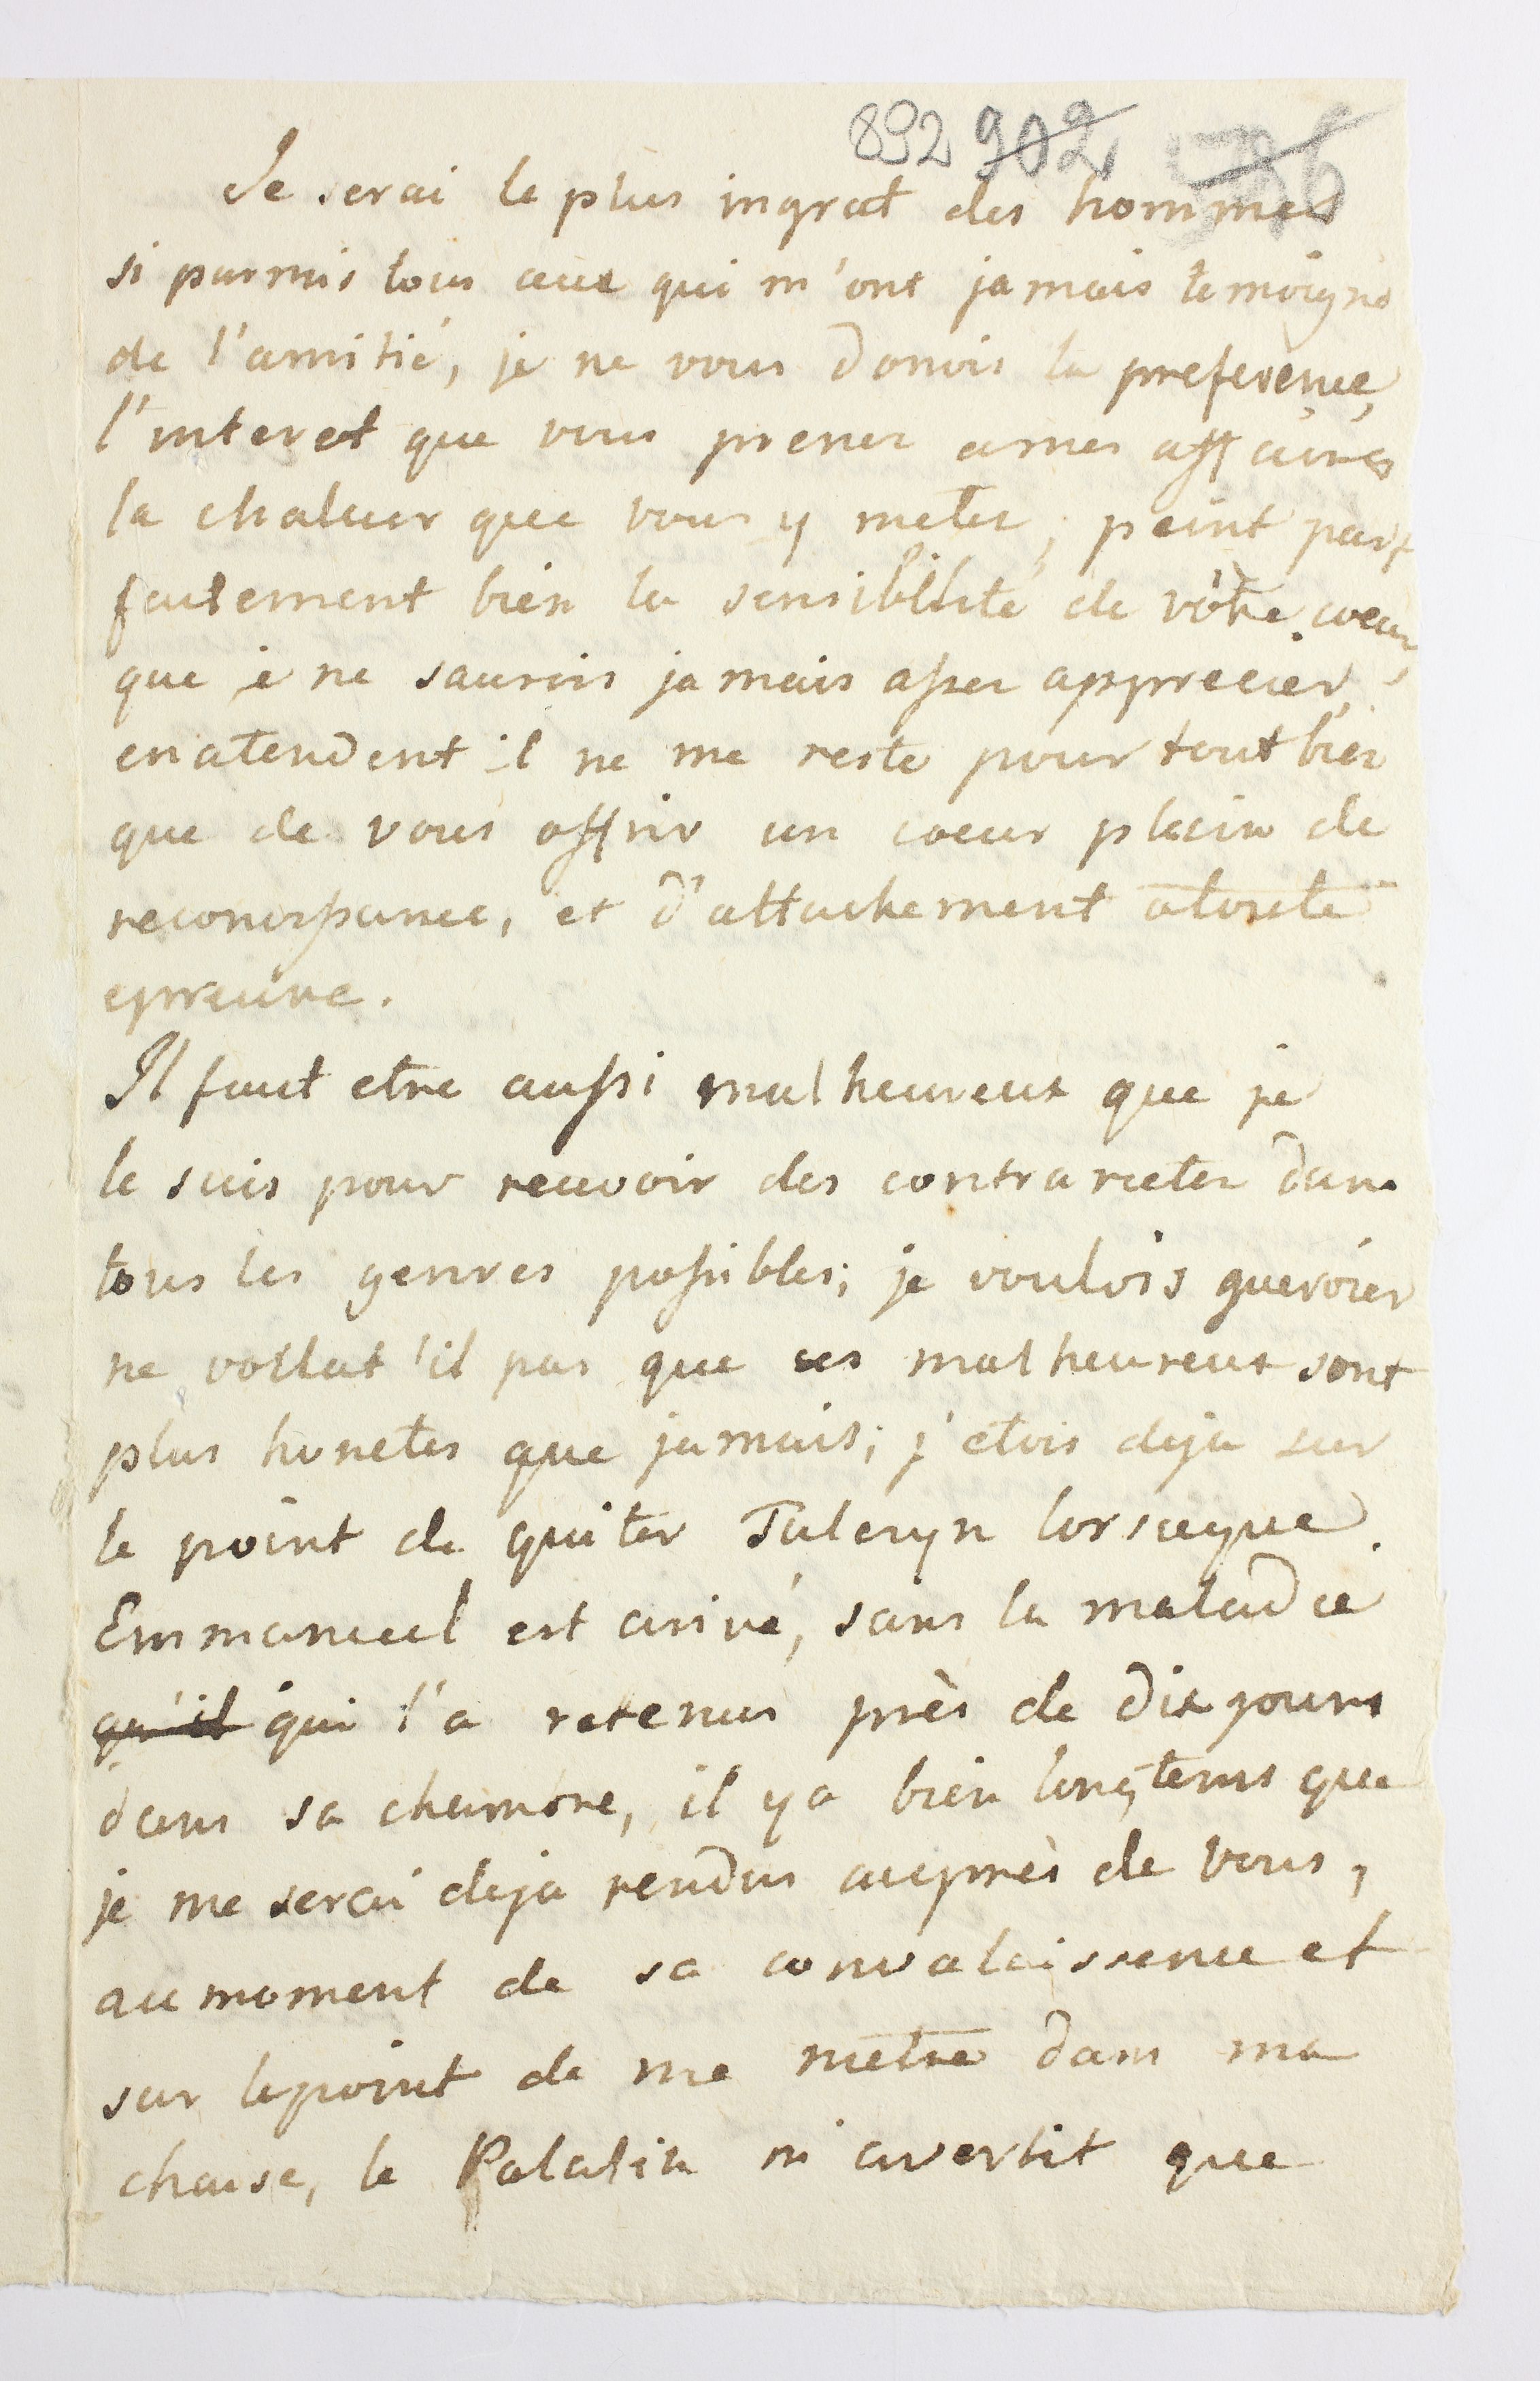 892 902
Je serai le plus ingrat des hommes
si parmis tous ceux qui m'ont jamais temoigné
de l'amitié, je ne vous donois la preference,
l'interet que vous prenez a mes affaires
la chaleur que vous y metez, peint par=
faitement bien la sensibilité de vôtre coeur,
que je ne saurois jamais assez apprecier,
en atendent il ne me reste pour tout bien
que de vous offrir un coeur plein de
reconoissance, et d'attachement a toute
epreuve.
Il faut etre aussi malheureux que je
le suis pour recevoir des contrarietez dans
tous les genres possibles; je voulois gueroïer
ne voilat'il pas que ces malheureux sont
plus honetes que jamais; j'etois deja sur
le point de quiter Tulczyn lorsuque
Emmanuel est arivé, sans la maladie
qu'il qui l'a retenus près de dix jours
dans sa chambre, il y a bien longtems que
je me serai deja rendus auprès de vous,
au moment de sa convalaissence et
sur le point de me metre dans ma
chaise, le Palatin m'avertit que